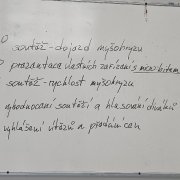 soutěž - dojezd myšohryzu
prezentace vlastních zařízení s micro:bitem
soutěž - rychlost myšohryzu
vyhodnocení soutěží a hlasování diváků
vyhlášení vítězů a předání cen